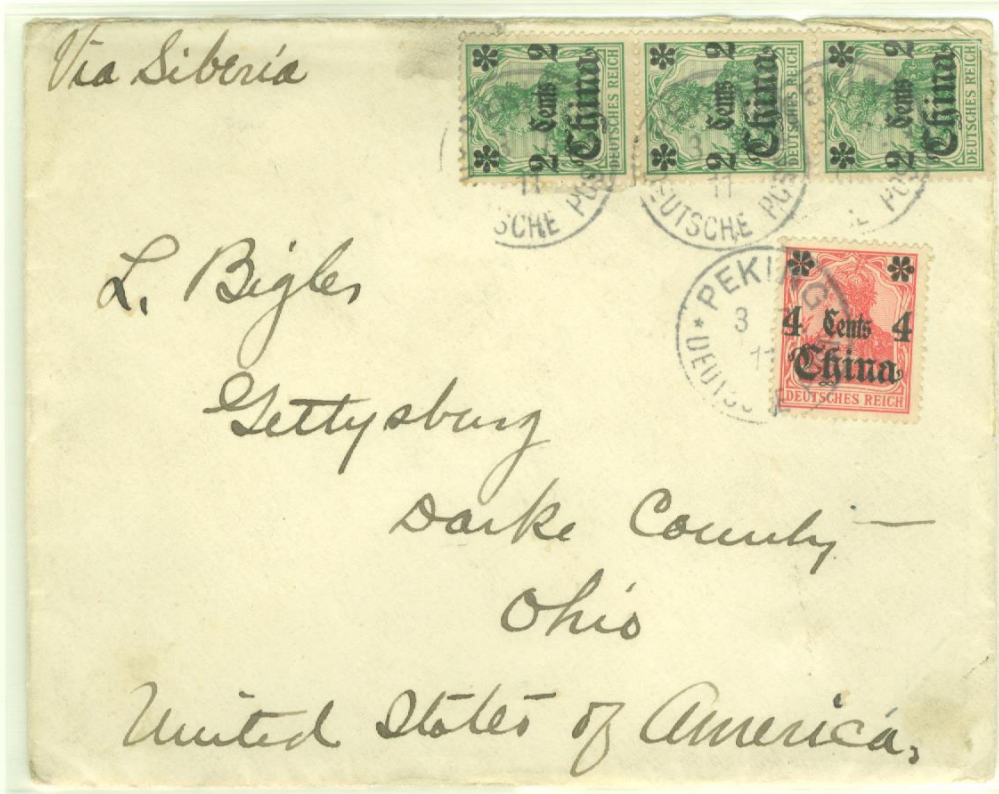 Via Siberia
2 Cents 2
China
DEUTSCHES REICH
2 Cents 2
China
DEUTSCHES REICH
2 Cents 2
China
DEUTSCHES REICH
11
SCHE POS
3
11
EUTSCHE POS
L. Bigler
PEKING
3
11
4 Cents 4
China
DEUTSCHES REICH
Gettysburg
Darke County
Ohio
United States of America,